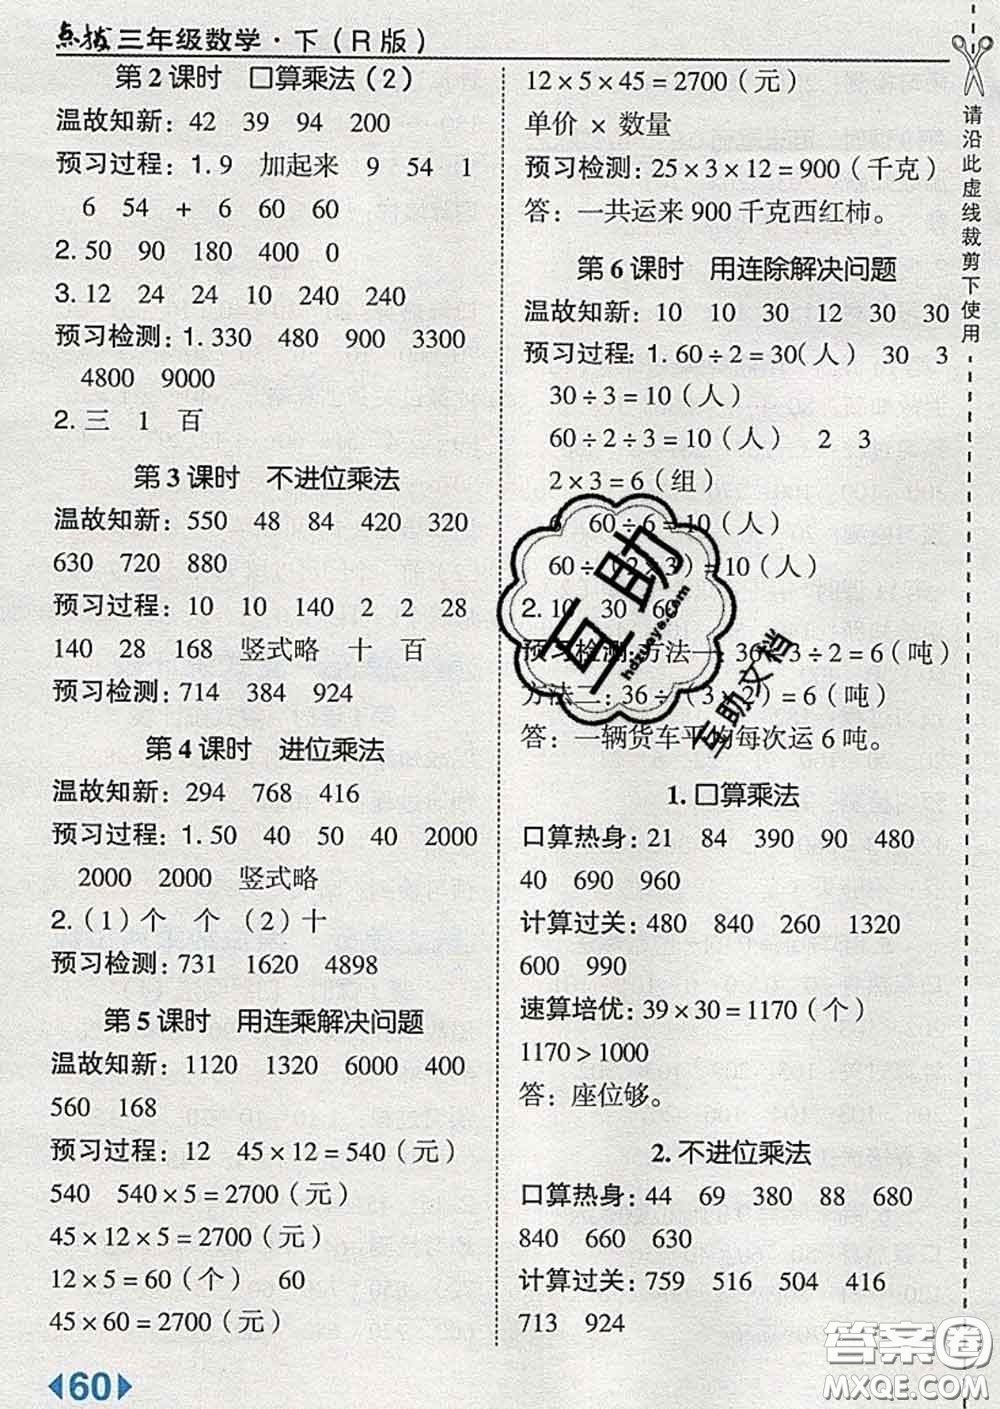 点拨 三年级数学·下（R版）
第2课时 口算乘法（2）
温故知新：42 39 94 200
预习过程：1.9 加起来 9 54 1
6 54 + 6 60 60
2. 50 90 180 400 0
3. 12 24 24 10 240 240
预习检测：1. 330 480 900 3300
4800 9000
2. 三 1 百
第3课时 不进位乘法
温故知新：550 48 84 420 320
630 720 880
预习过程：10 10 140 2 2 28
140 28 168 竖式略 十 百
预习检测：714 384 924
第4课时 进位乘法
温故知新：294 768 416
预习过程：1. 50 40 50 40 2000
2000 2000 竖式略
2.（1）个 个（2）十
预习检测：731 1620 4898
第5课时 用连乘解决问题
温故知新：1120 1320 6000 400
560 168
预习过程：12 45×12＝540（元）
540 540×5＝2700（元）
45×12×5＝2700（元）
12×5＝60（个） 60
45×60＝2700（元）
60
12×5×45＝2700（元）
单价 × 数量
预习检测：25×3×12＝900（千克）
答：一共运来900千克西红柿。
第6课时 用连除解决问题
温故知新：10 10 30 12 30 30
预习过程：1. 60÷2＝30（人） 30 3
30÷3＝10（人）
60÷2÷3＝10（人） 2 3
2×3＝6（组）
6 60÷6＝10（人）
60÷（2×3）＝10（人）
2. 10 30 60
预习检测：方法一：36÷3÷2＝6（吨）
方法二：36÷（3×2）＝6（吨）
答：一辆货车平均每次运6吨。
1. 口算乘法
口算热身：21 84 390 90 480
40 690 960
计算过关：480 840 260 1320
600 990
速算培优：39×30＝1170（个）
1170＞1000
答：座位够。
2. 不进位乘法
口算热身：44 69 380 88 680
840 660 630
计算过关：759 516 504 416
713 924
请沿此虚线裁剪下使用
互助
hdzuoye.com
互助文档
答案圈
MXQE.COM